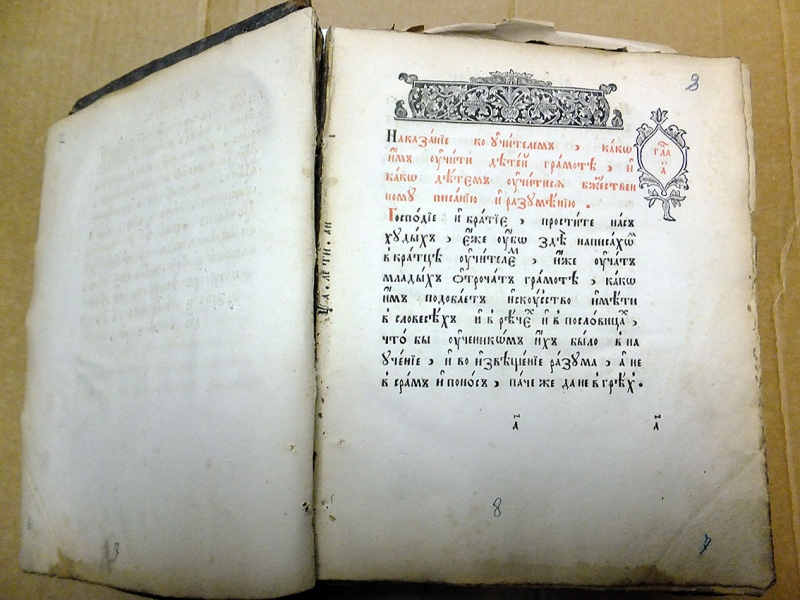 Наказа́нїе ко ѹ҆чи́телемъ , ка́кѡ
и҆̀мъ ѹ҆чи́ти дѣте́й гра́мотѣ , и҆
ка́кѡ дѣ́темъ ѹ҆чи́тисѧ бж҃ествен
ному писа́нїю и҆ разꙋмѣ́нїю .
гла
а҃
Госпо́дїе и҆ бра́тїе , прости́те на́съ
хꙋды́хъ , є҆́же ѹ҆́бѡ здѣ̀ написа́хѡⷨ
в кра́тцѣ ѹ҆чи́телеⷨ , и҆̀же ѹ҆́чатъ
млады́хъ ѻ҆троча́тъ гра́мотѣ , ка́кѡ
и҆̀мъ подоба́етъ и҆скѹ́сство и҆мѣ́ти
в словесѣ́хъ и҆ в рѣ́чеⷯ и҆ в посло́вицаⷯ ,
что́ бы ѹ҆ченикѡ́мъ и҆́хъ бы́ло в на
ѹче́нїе , и҆ во и҆звѣще́нїе ра́зѹма , а҆ не
в сра́мъ и҆ поно́съ , па́че же да не в грѣ́хъ .
а҃ а҃
8